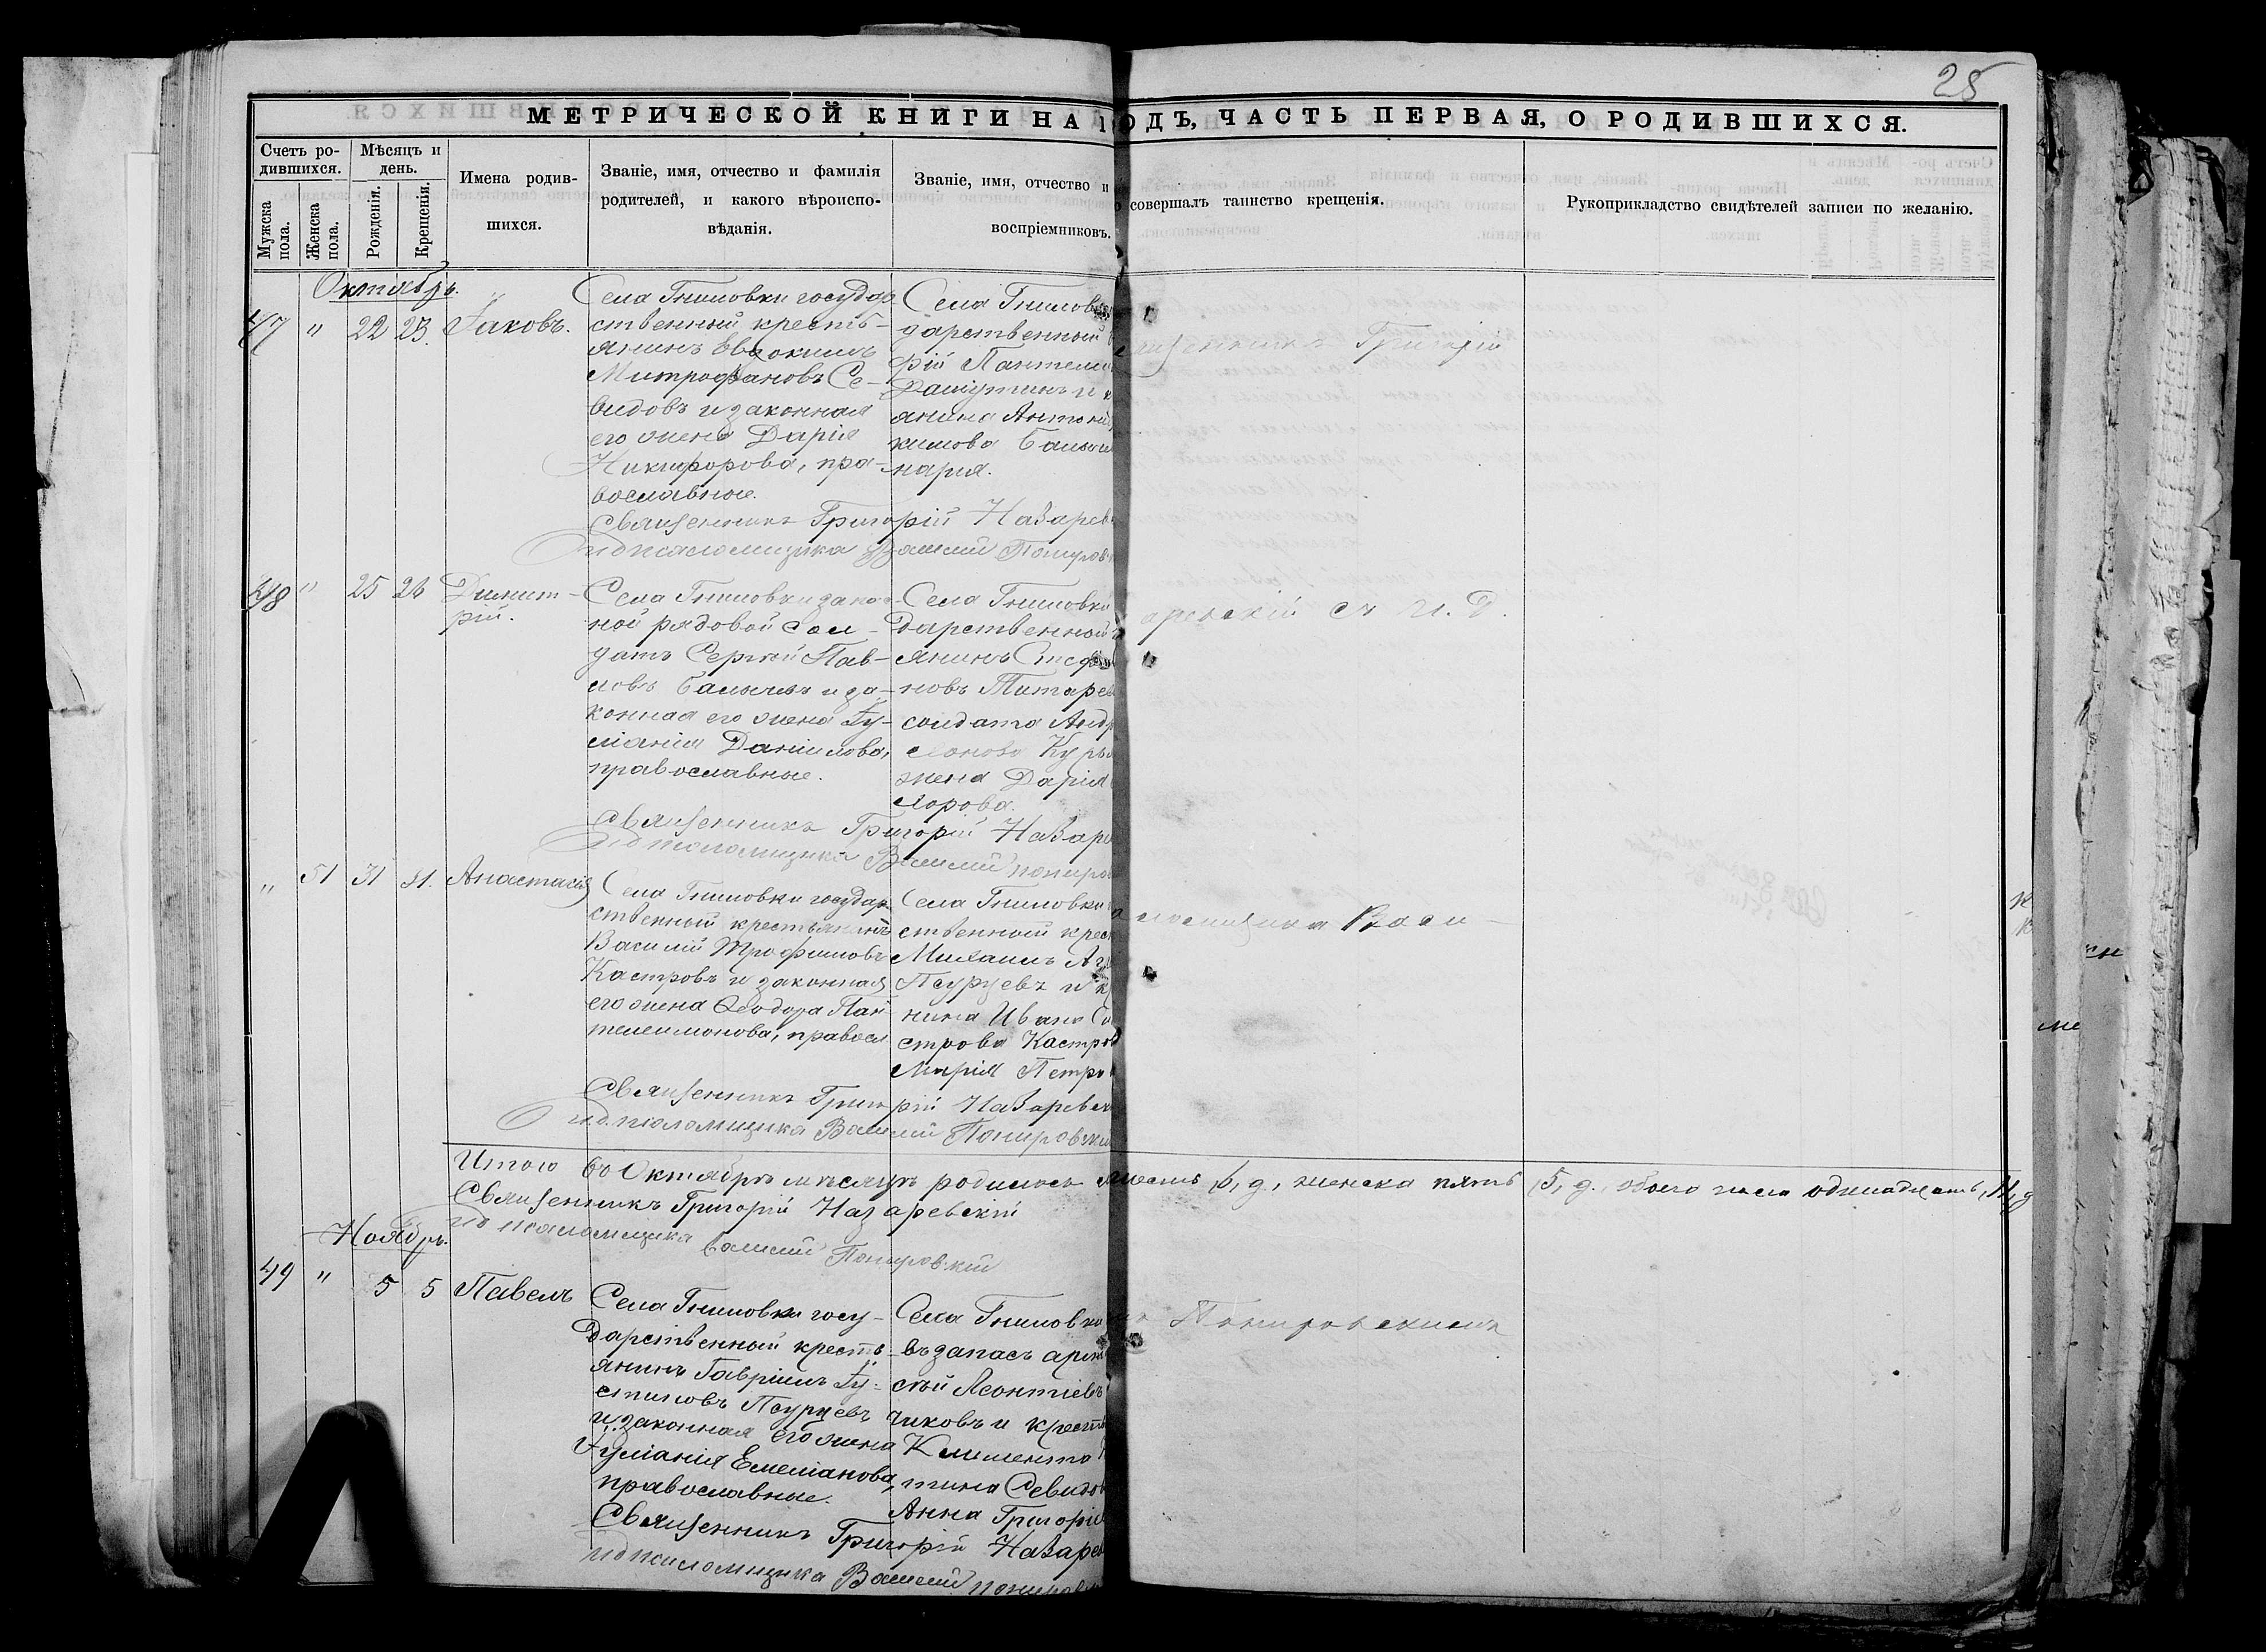 25
МЕТРИЧЕСКОЙ КНИГИ НА 1 ОДЪ, ЧАСТЬ ПЕРВАЯ, О РОДИВШИХСЯ.
Счетъ ро-
дившихся.
Мужска
пола.
Женска
пола.
Мѣсяцъ и
день.
Рожденія.
Крещенія.
Имена родив-
шихся.
Званіе, имя, отчество и фамилія
родителей, и какого вѣроиспо-
вѣданія.
Званіе, имя, отчество и
воспріемниковъ.
совершалъ таинство крещенія.
Рукоприкладство свидѣтелей записи по желанію.
Октябрь.
47 " 22 23. Іаковъ.
Села Гниловки государ
ственный кресть-
янинъ Евдокимъ
Митрофановъ Се-
видовъ и законная
его жена Дарія
Никифорова, пра-
вославные.
Села Гнилов
дарственный
рій Пантели
янина Антоні
кимова
марія.
Священникъ Григорій
Священникъ Григорій Назарев
и д псаломщика Василий Понуров
48 " 25 26 Димит-
рій.
Села Гниловки запас
ной рядовой сол-
датъ Сергѣй Пав-
ловъ и за-
конная его жена Іу-
ліанія Даніилова,
православные.
Села Гниловки
дарственный
янинъ Стеф
новъ Титаре
солдата Андр
жена Дарія
Священникъ Григорій Назаре
и д псаломщика Василий Понуров
аревскій съ и. д.
" 51 31 31. Анастасія
Села Гниловки государ
ственный крестьянинъ
Василій Трофимовъ
Кастровъ и законная
его жена Ѳеодора Пан
телеимонова, правосл
Села Гниловки
ственный крес
Михаилъ Аг
Псурцевъ и к
нина Ивана
строва Кастров
Марія Петро
псаломщика Васи-
Священникъ Григорій Назаревск
и д псаломщика Василий Понуровскі
Итого въ Октябрѣ мѣсяцѣ родилось 6, д., женска пять 5, д. обоего пола одинадцать, 11, д
Священникъ Григорій Назаревскій
и д псаломщика Василий Понуровскій
Ноябрь.
49 " 5 5 Павелъ
Села Гниловки госу-
дарственный кресть
янинъ Гавріилъ Іу-
стиновъ Псурцевъ
и законная его жена
Іуліанія Емеліанова,
православные.
Села Гниловки
въ запасъ арм
сѣй Леонтіевъ
чиковъ и кресть
Климента
тина Севидов
Анна Григоріе
Понуровскимъ
Священникъ Григорій Назарев
и д псаломщика Василий Понуров